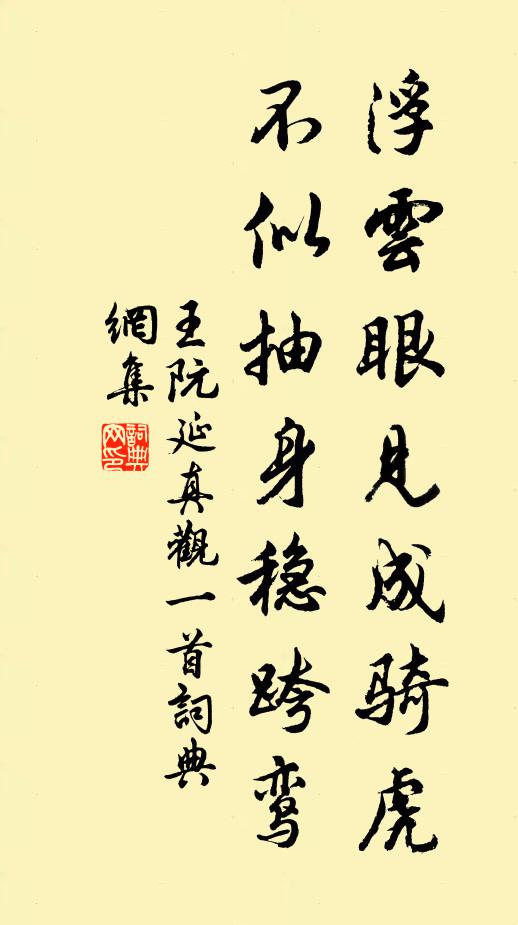 浮雲眼見成骑虎
不似抽身稳跨鸾
王阮延真觀一首詞典
網集
詞典
网印